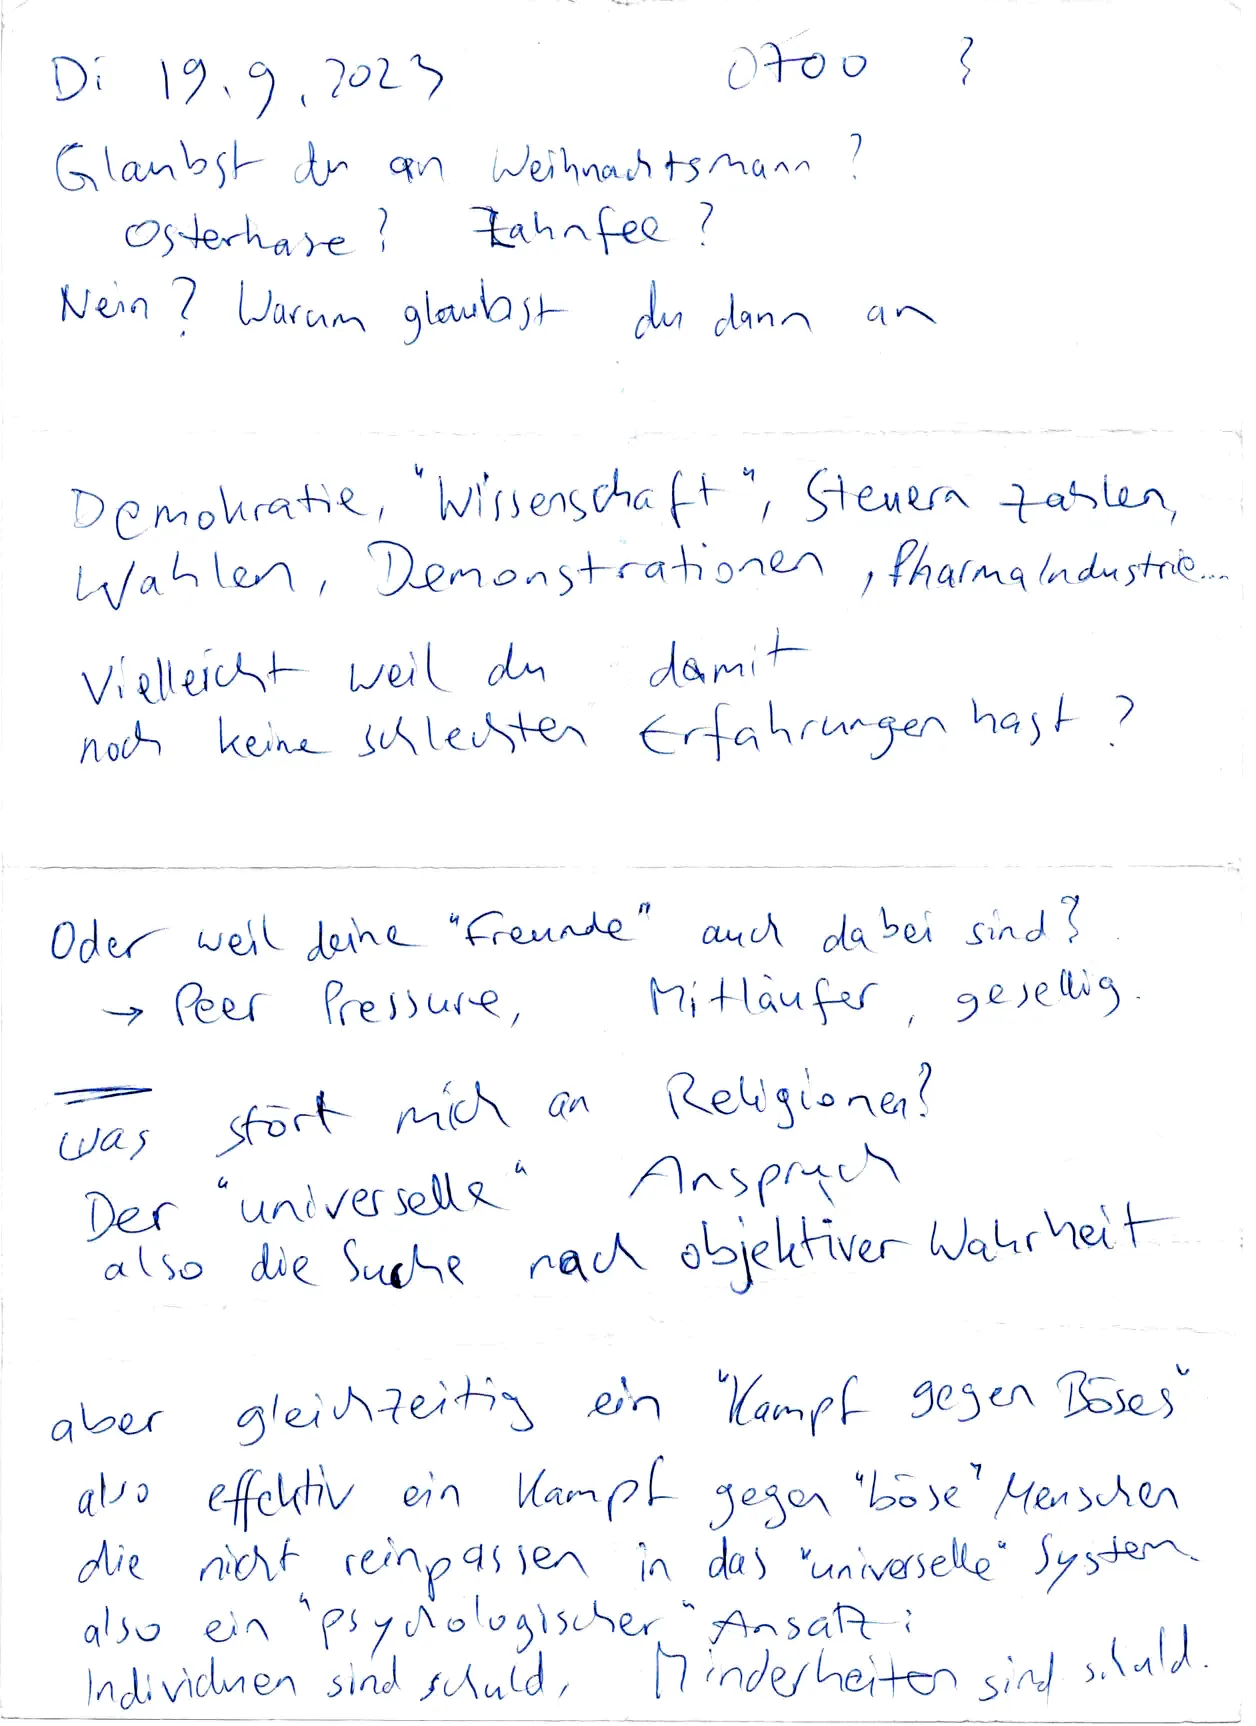 Di 19.9.2023 0700 ?
Glaubst du an Weihnachtsmann?
Osterhase? Zahnfee?
Nein? Warum glaubst du dann an
Demokratie, "Wissenschaft", Steuern zahlen,
Wahlen, Demonstrationen, PharmaIndustrie...
Vielleicht weil du damit
noch keine schlechten Erfahrungen hast?
Oder weil deine "Freunde" auch dabei sind?
→ Peer Pressure, Mitläufer, gesellig.
Was stört mich an Religionen?
Der "universelle" Anspruch
also die Suche nach objektiver Wahrheit
aber gleichzeitig ein "Kampf gegen Böses"
also effektiv ein Kampf gegen "böse" Menschen
die nicht reinpassen in das "universelle" System.
also ein "psychologischer" Ansatz:
Individuen sind schuld, Minderheiten sind schuld.